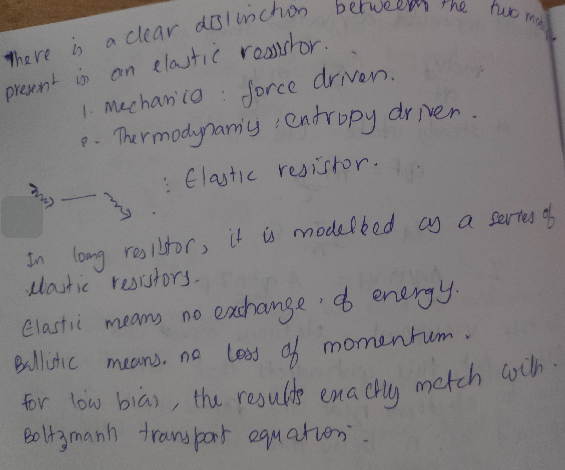 There is a clear distinction between the two
present in an elastic resistor.
1. Mechanics : force driven.
2. Thermodynamics : entropy driven.
: Elastic resistor.
In long resistor, it is modelled as a series of
elastic resistors.
Elastic means no exchange of energy.
Ballistic means. no loss of momentum.
for low bias, the results exactly match with
Boltzmann transport equation.